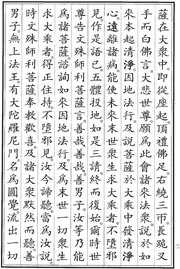 薩在大眾中即從座起頂禮佛足右繞三帀長跪叉
手而白佛言大悲世尊願為此會諸來法眾說於如
來本起清淨因地法行及說菩薩於大乘中發清淨
心遠離諸病能使未來末世眾生求大乘者不墮邪
見作是語已五體投地如是三請終而復始爾時世
尊告文殊師利菩薩言善哉善哉善男子汝等乃能
為諸菩薩諮詢如來因地法行及為末世一切眾生
求大乘者得正住持不墮邪見汝今諦聽當為汝說
時文殊師利菩薩奉教歡喜及諸大眾默然而聽善
男子無上法王有大陀羅尼門名為圓覺流出一切